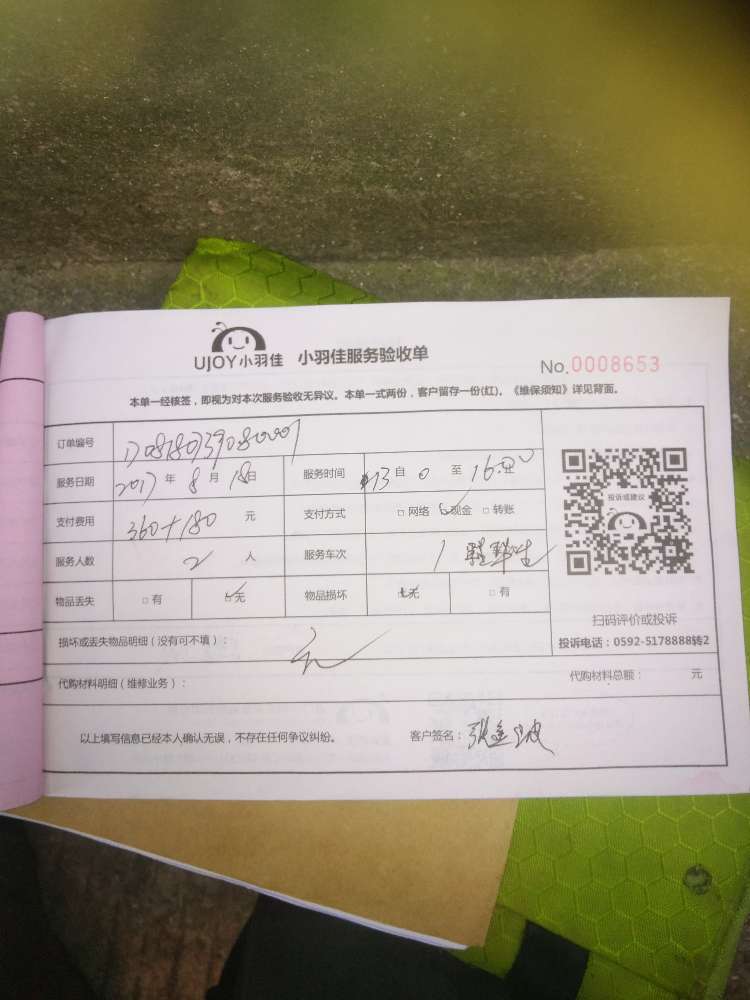 UJOY小羽佳 小羽佳服务验收单
No.0008653
本单一经核签，即视为对本次服务验收无异议。本单一式两份，客户留存一份(红)。《维保须知》详见背面。
订单编号
服务日期 2017年 8月 18日 服务时间 13自 0 至 16:00
支付费用 360+180 元 支付方式 □网络 ☑现金 □转账
服务人数 2 人 服务车次 1
物品丢失 □有 ☑无 物品损坏 ☑无 □有
损坏或丢失物品明细（没有可不填）： 无
代购材料明细（维修业务）： 代购材料总额： 元
以上填写信息已经本人确认无误，不存在任何争议纠纷。 客户签名：
投诉或建议
扫码评价或投诉
投诉电话：0592-5178888转2